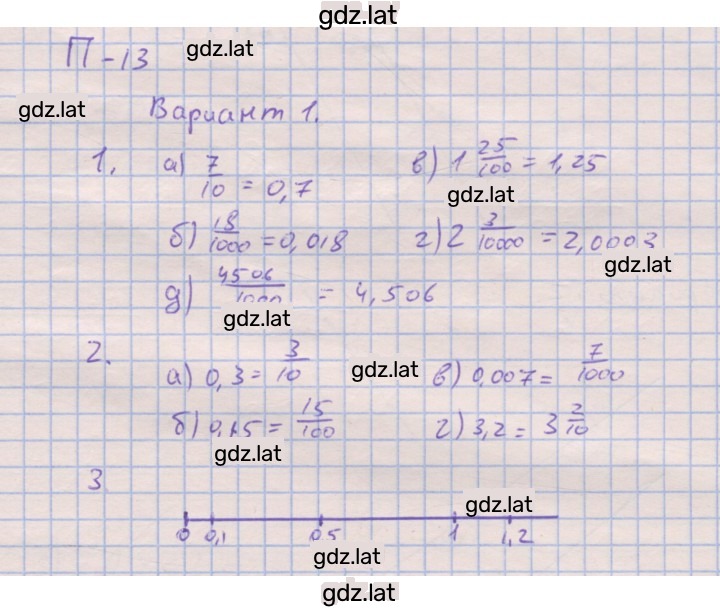 gdz.lat
П-13 gdz.lat
gdz.lat Вариант 1.
1. а) 7/10 = 0,7 в) 1 25/100 = 1,25
gdz.lat
б) 18/1000 = 0,018 г) 2 3/10000 = 2,0003
gdz.lat
д) 4506/1000 = 4,506
gdz.lat
2. а) 0,3 = 3/10 gdz.lat в) 0,007 = 7/1000
б) 0,15 = 15/100 г) 3,2 = 3 2/10
gdz.lat
3.
gdz.lat
0 0,1 0,5 1 1,2
gdz.lat
gdz.lat